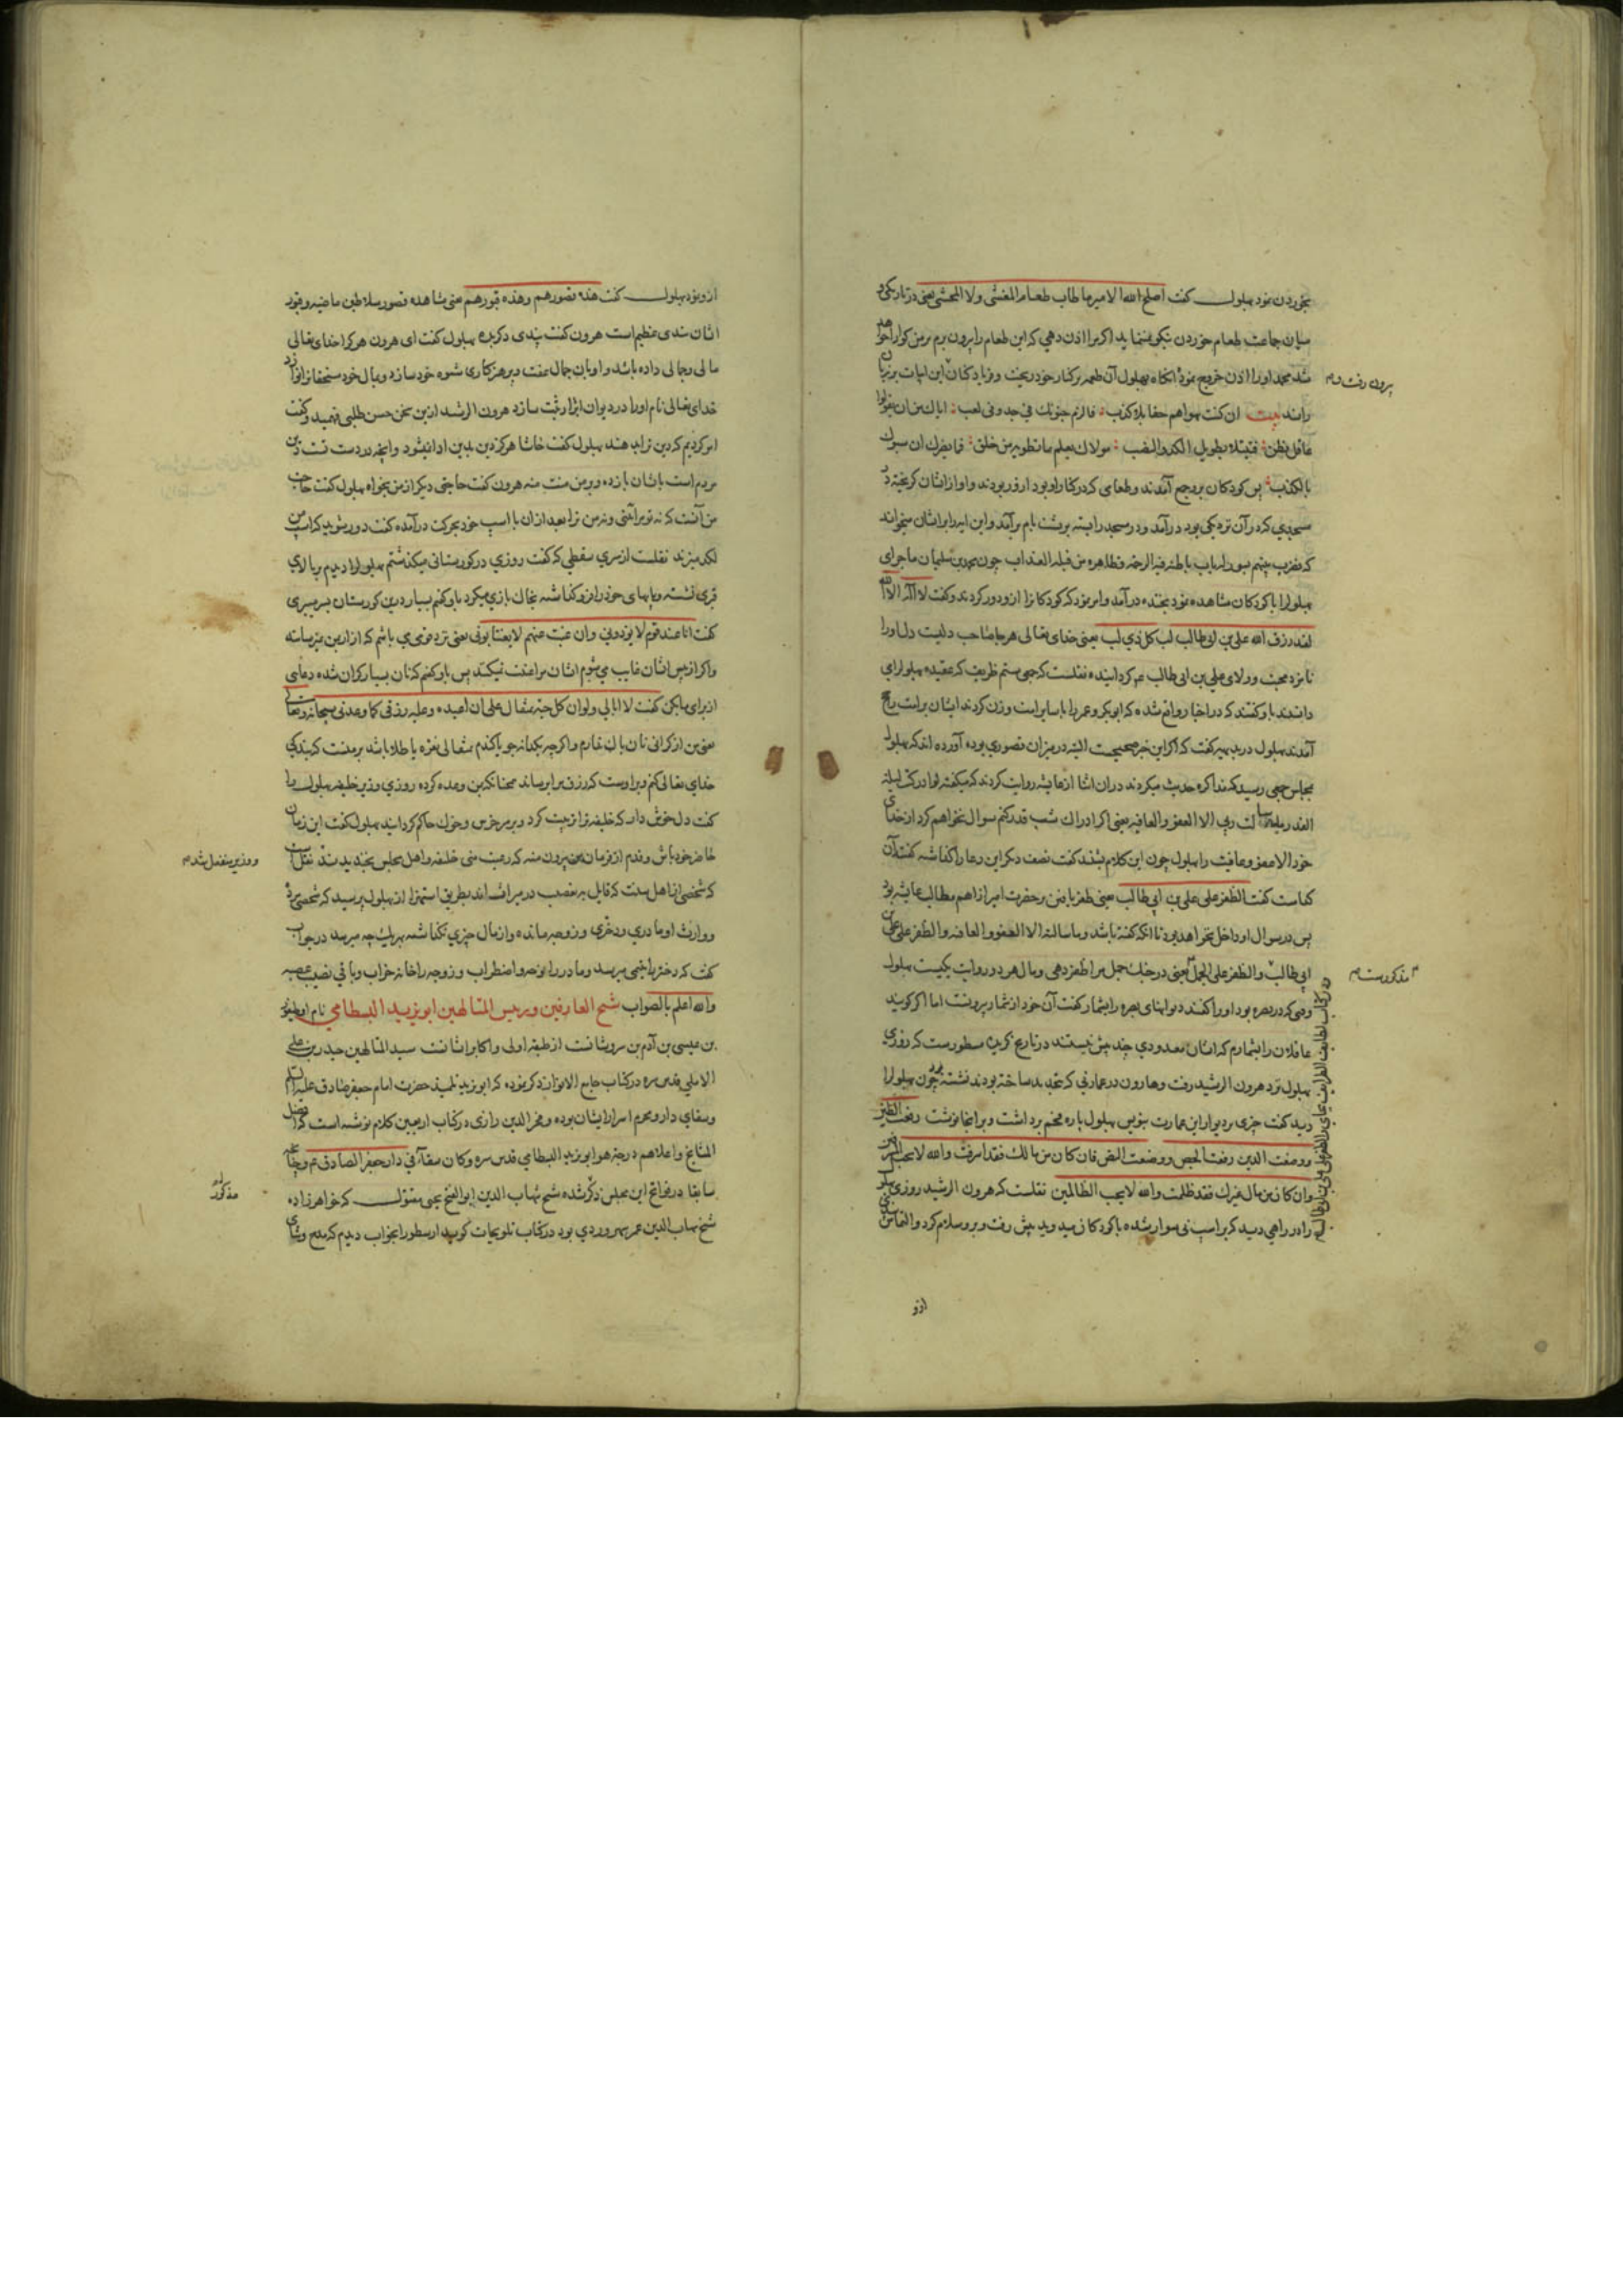 بخوردن نمود بهلول گفت اصلح الله الامیر ما طاب طعام المغشی ولا المحشی یعنی در تاریکی و
میان جماعت طعام خوردن نیکو نمینماید اکر مرا اذن دهی که این طعام را بیرون برم بر من کوارا خواهد
شد محمد او را اذن خروج نمود آنکاه بهلول آن طعمه بر کنار خود ریخت و فریاد کنان این ابیات بر زبان
بیرون رفت و
راند بیت ان کنت تهواهم حقا بلا کذب فالزم جنونك فی جد وفی لعب ایاك من ان یقولوا
عاقل فطن فتبتلا بطویل الکد والنصب مولاك یعلم ما تطویه من خلق فما یضرك ان سبوك
بالکذب پس کودکان برو جمع آمدند و طعامی که در کنار او بود ازو ربودند و او از ایشان کریخته در
مسجدی که در آن نزدیکی بود درآمد و در مسجد را بسته بر پشت بام برآمد و این ایه را بر ایشان میخواند
که فضرب بینهم بسور له باب باطنه فیه الرحمه وظاهره من قبله العذاب چون محمد بن سلیمان ماجرای
بهلول را با کودکان مشاهده نمود بخنده درآمد و امر نمود که کودکانرا ازو دور کردند و گفت لا اله الا الله
لقد رزق الله علی بن ابی طالب لب کل ذی لب یعنی خدای تعالی هرجا صاحب دلیست دل او را
نامزد محبت و ولای علی بن ابی طالب ع کردانیده نقلست که جمعی ستم ظریف که عقیده بهلول را می
دانستند باو گفتند که در اخبار واقع شده که ابوبکر و عمر را با سایر امت وزن کردند ایشان بر امت راجح
آمدند بهلول در بدیهه گفت که اکر این خبر صحیحست البته در میزان قصوری بوده آورده اند که بهلول
بمجلس جمعی رسید که مذاکره حدیث میکردند در ان اثنا از عایشه روایت کردند که میکفته لو ادرکت لیلة
القدر ما سالت ربی الا العفو والعافیه یعنی اکر ادراك شب قدر کنم سوال نخواهم کرد از خدای
خود الا عفو و عافیت را بهلول چون این کلام بشنید گفت نصف دیکر این دعا را کذاشته گفتند آن
کدامست گفت الظفر علی علی بن ابی طالب یعنی ظفر یافتن بر حضرت امیر از اهم مطالب عایشه بود
پس در سوال او داخل خواهد بود تا آنکه گفته باشد و ما سالته الا العفو والعافیه والظفر علی علی بن
ابی طالب والظفر علی الجمل یعنی در جنك جمل مرا ظفر دهی و مال هر دو روایت یکیست بهلول
مذکورست
وقتی که در بصره بود او را گفتند دیوانهای بصره را بشمار گفت آن خود از شمار بیرونست اما اکر کویید
عاقلان را بشمارم که ایشان معدودی چند بیش نیستند در تاریخ گزیده مسطورست که روزی
بهلول نزد هرون الرشید رفت و هارون در عمارتی که مجدد ساخته بودند نشسته بود چون بهلول را
دید گفت چیزی بر دیوار این عمارت بنویس بهلول پاره فحم برداشت و بر انجا نوشت رفعت الطین
ووضعت الدین رفعت الجص ووضعت النص فان کان من مالك فقد اسرفت والله لا یحب المسرفین
وان کان من مال غیرك فقد ظلمت والله لا یحب الظالمین نقلست که هرون الرشید روزی بهلول
را در راهی دید که بر اسب نی سوار شده با کودکان میدوید پیش رفت و برو سلام کرد و التماس
ازو
ازو نمود بهلول گفت هذه قصورهم وهذه قبورهم یعنی مشاهده قصور سلاطین ماضیه و قبور
ایشان پندی عظیم است هرون گفت پندی دیکر ده بهلول گفت ای هرون هرکرا خدای تعالی
مالی و جمالی داده باشد و او با آن جمال عفت و پرهیزکاری شیوه خود سازد و بمال خود مستحقانرا نوازد
خدای تعالی نام او را در دیوان ابرار ثبت سازد هرون الرشید ازین سخن حسن طلبی فهمید و گفت
امر کردیم که دین ترا بدهند بهلول گفت حاشا هرکز دین بدین ادا نشود و آنچه در دست تست دین
مردم است بایشان باز ده و بر من منت منه هرون گفت حاجتی دیکر از من بخواه بهلول گفت حاجت
من آنست که نه تو مرا بینی و نه من ترا بعد ازان با اسب خود بحرکت درآمده گفت دور شوید که اسب من
لکد میزند نقلست از سری سقطی که گفت روزی در کورستانی میکذشتم بهلول را دیدم بر بالای
قبری نشسته و پایهای خود را فرو کذاشته بخاك بازی میکرد باو کفتم بسیار درین کورستان بسر میبری
گفت انا عند قوم لا یؤذونی وان غبت عنهم لا یغتابونی یعنی نزد قومی می باشم که آزار بمن نمیرسانند
و اکر از پیش ایشان غایب می شوم ایشان مرا غیبت نمیکنند پس باو کفتم که نان بسیار کران شده دعایی
از برای ما بکن گفت لا ابالی ولو ان کل حبة بمثقال علی ان اعبده وعلیه رزقی کما وعدنی سبحانه وتعالی
یعنی من از کرانی نان باك ندارم و اکرچه یکدانه جو یا کندم بمثقالی نقره یا طلا باشد بر منست که بندکی
خدای تعالی کنم و بر اوست که رزق مرا برساند همچنانکه بمن وعده کرده روزی وزیر خلیفه بهلول را
گفت دل خوش دار که خلیفه ترا تربیت کرد و بر سر خرس و خوك حاکم کردانید بهلول گفت این زمان
حاضر خود باش و قدم از فرمان من بیرون منه که رعیت منی خلیفه و اهل مجلس بخندیدند نقلست
و وزیر منفعل شد
که شخصی از اهل سنت که قایل به تعصیب در میراث اند بطریق استهزا از بهلول پرسید که شخصی مرده
و وارث او مادری و دختری و زوجه مانده و از مال چیزی نکذاشته بهر یك چه میرسد در جواب
گفت که دختر را یتیمی میرسد و مادر را نوحه و اضطراب و زوجه را خانه خراب و باقی نصیب عصبه
والله اعلم بالصواب شیخ العارفین و رییس المتالهین ابویزید البسطامی نام او طیفور
بن عیسی بن آدم بن سروشانست از طبقه اولی و اکابر ایشانست سید المتالهین حیدر بن علی
الاملی قدس سره در کتاب جامع الانوار ذکر نموده که ابویزید تلمیذ حضرت امام جعفر صادق علیه السلام
و سقای دار و محرم اسرار ایشان بوده و فخر الدین رازی در کتاب اربعین کلام نوشته است که افضل
المشایخ واعلاهم درجة هو ابویزید البسطامی قدس سره وکان سقاء فی دار جعفر الصادق ع و چنانچه
سابقا در فواتح این مجلس ذکر شده شیخ شهاب الدین ابوالفتح یحیی مقتول که خواهرزاده
مذکور
شیخ شهاب الدین عمر سهروردی بود در کتاب تلویحات کوید ارسطو را بخواب دیدم که مدح و ثنای